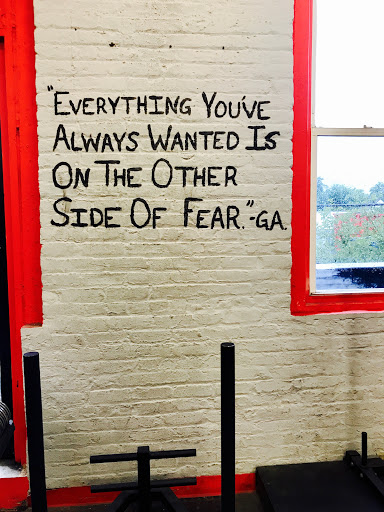 "Everything You've
Always Wanted Is
On The Other
Side Of Fear."-GA.